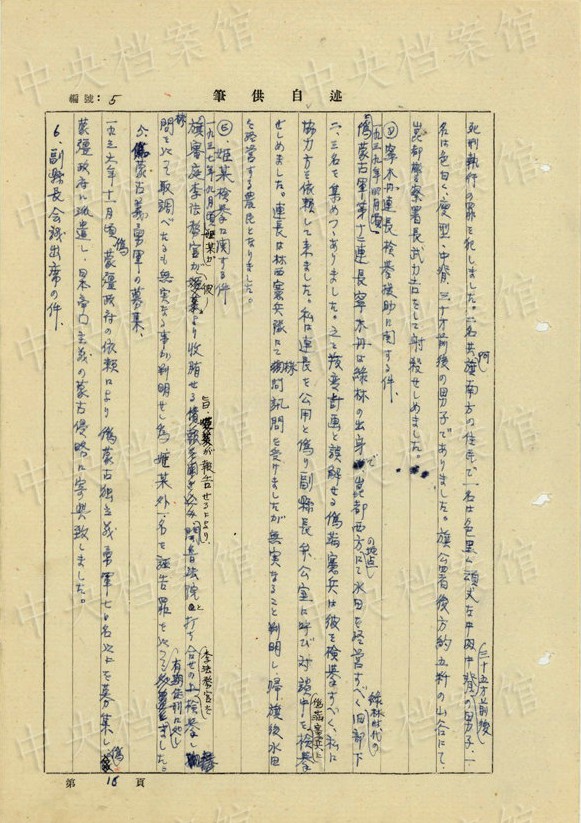 中央档案馆
述自供筆
編號：5
死刑執行の罪を犯しました。二名共阿旗南方の住民で一名は色黒く頑丈な中肉中背の三十五才前後の男子、一
名は色白く、瘦型、中背、三十才前後の男子でありました。旗公署後方約五粁の山谷にて、
崑都警察署長武力吉をして射殺せしめました。
寧木丹連長検挙援助に関する件、
一九三九年四月頃
偽蒙古軍第十二連長寧木丹は緑林の出身で崑都西方の地点にて水田を経営すべく緑林時代の旧部下
二、三名を集めつゝありました。之を叛変計画と誤解せる偽満憲兵は彼を検挙すべく、私に
協力方を依頼して来ました。私は連長を公用と偽り副縣長公室に呼び対談中を偽満憲兵に検挙
せしめました。連長は林西憲兵隊にて訊問を受けましたが無実なること判明し帰旗後水田
を経営する農民となりました。
姫某検挙に関する件
一九三七年九月頃
旗審庭李法警官が姫某より収賄せる旨姫某が報告せるにより、
問を以て取調べたるも無実なる事が判明せし為姫某外一名を誣告罪を以つて有期徒刑に処しました。
5、偽蒙古義勇軍の募集、
一九三六年十一月頃、偽蒙疆政府の依頼により偽蒙古独立義勇軍七〇名以上を募集し、偽
蒙疆政府に派遣し、日本帝国主義の蒙古侵略に寄與致しました。
6、副縣長会議出席の件、
第 16 頁